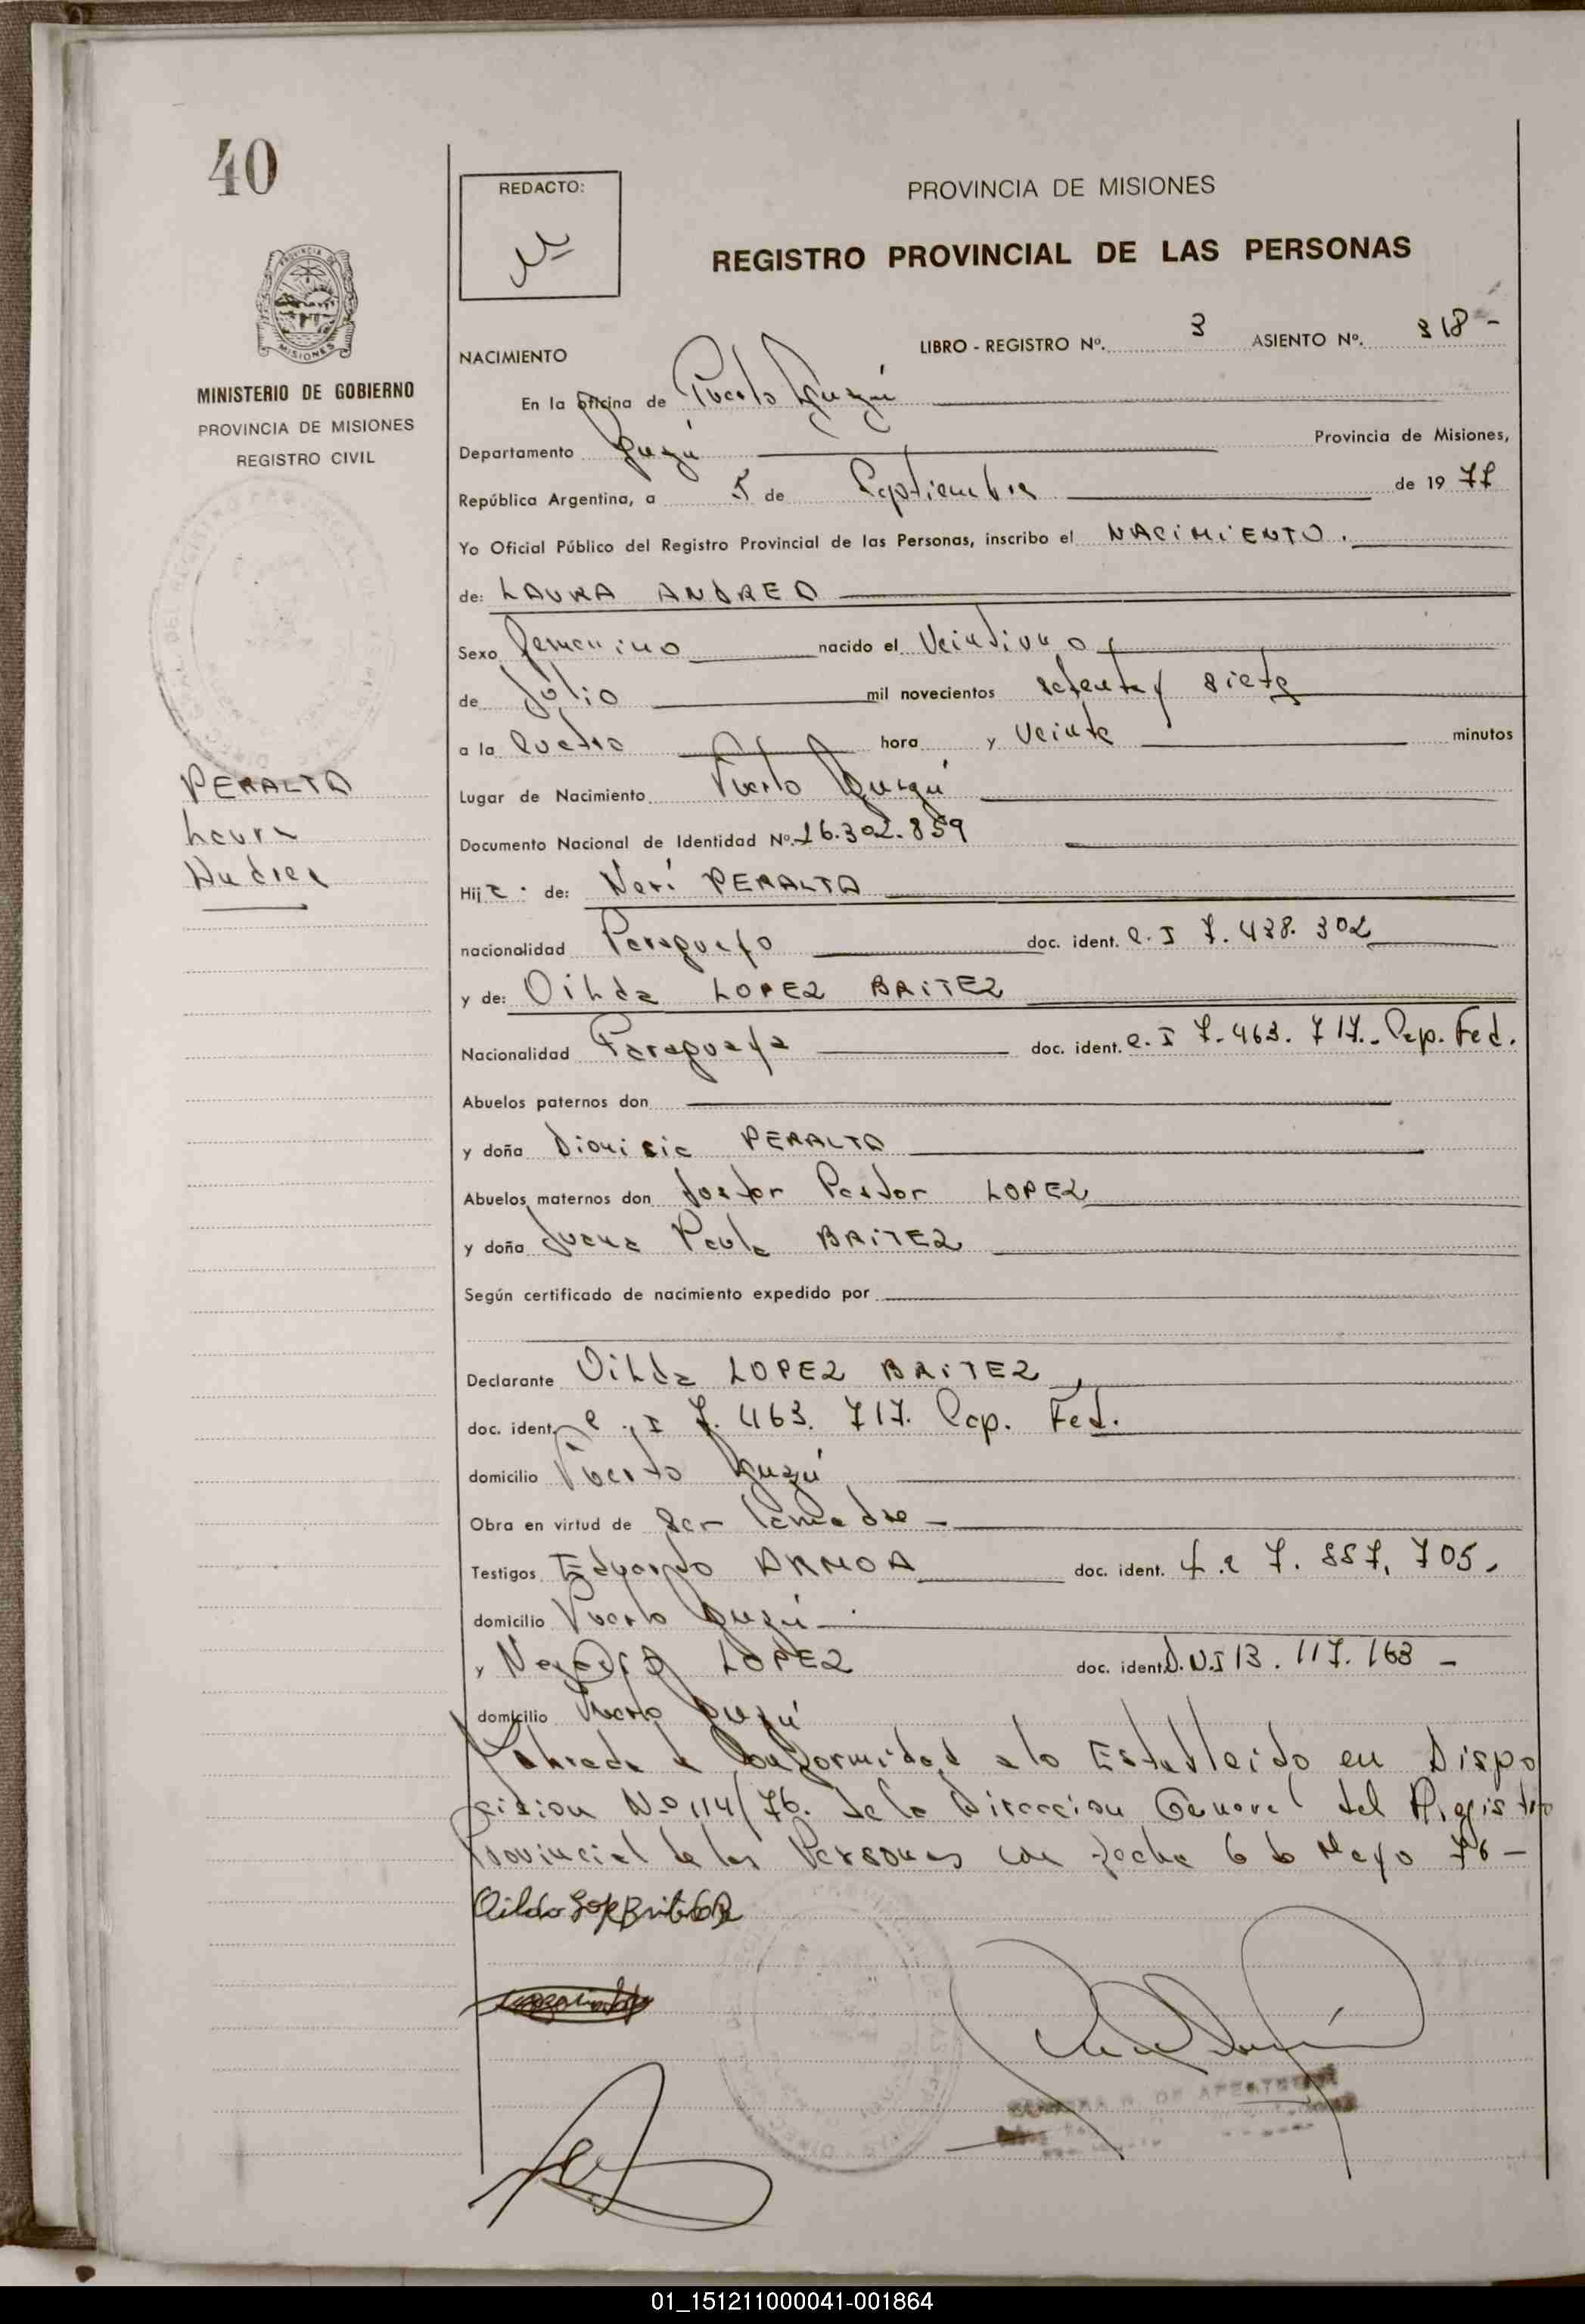 40
REDACTO:
PROVINCIA DE MISIONES
REGISTRO PROVINCIAL DE LAS PERSONAS
MINISTERIO DE GOBIERNO
PROVINCIA DE MISIONES
REGISTRO CIVIL
PERALTA
Laura
Andrea
NACIMIENTO
LIBRO - REGISTRO Nº. 3 ASIENTO Nº. 318 -
En la oficina de Puerto Iguazú
Departamento Iguazú Provincia de Misiones,
República Argentina, a 5 de Septiembre de 1977
Yo Oficial Público del Registro Provincial de las Personas, inscribo el NACIMIENTO.
de: LAURA ANDREA
Sexo femenino nacido el Veintiuno
de Julio mil novecientos setenta y siete
a la Cuatro hora y Veinte minutos
Lugar de Nacimiento Puerto Iguazú
Documento Nacional de Identidad Nº. 26.302.859
Hija de: Neri PERALTA
nacionalidad Paraguayo doc. ident. C. I 7.438.302
y de: Oilda LOPEZ BRITEZ
Nacionalidad Paraguaya doc. ident. C. I 7.463.717.- Cap. Fed.
Abuelos paternos don
y doña Dionisia PERALTA
Abuelos maternos don Pastor LOPEZ
y doña Juana Paula BRITEZ
Según certificado de nacimiento expedido por
Declarante Oilda LOPEZ BRITEZ
doc. ident. C. I 7.463.717. Cap. Fed.
domicilio Puerto Iguazú
Obra en virtud de ser la madre -
Testigos Eduardo ARMOA doc. ident. L.E 7.857.705.
domicilio Puerto Iguazú
y LOPEZ doc. ident. D.N.I 13.117.163 -
domicilio Puerto Iguazú
Labrada de Conformidad a lo Establecido en Dispo
sicion Nº 114/76. de la Direccion General del Registro
Provincial de las Personas con fecha 6 de Mayo 76 -
01_151211000041-001864